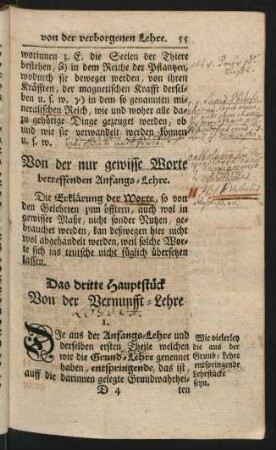 von der verborgenen Lehre. 55
worinnen z. E. die Seelen der Thiere
bestehen, 3) in dem Reiche der Pflantzen,
wodurch sie beweget werden, von ihren
Kräfften, der magnetischen Krafft dersel-
ben u. s. w. 7) in dem so genannten mi-
neralischen Reich, wie und woher alle da-
zu gehörige Dinge gezeuget werden, ob
und wie sie verwandelt werden können
u. s. w.
Von der nur gewisse Worte
betreffenden Anfangs-Lehre.
Die Erklärung der Worte, so von
den Gelehrten zum öfftern, auch wol in
gewisser Maße, nicht sonder Nutzen, ge-
brauchet werden, kan deßwegen hier nicht
wol abgehandelt werden, weil solche Wor-
te sich ins teutsche nicht füglich übersetzen
lassen.
Das dritte Hauptstück
Von der Vernunfft-Lehre
1.
Die aus der Anfangs-Lehre und
derselben ersten Theile welchen
wir die Grund-Lehre genennet
haben, entspringende, das ist,
auff die darinnen gelegte Grundwahrhei-
D 4 ten
Wie vielerley
die aus der
Grund-Lehre
entspringende
Lehrstücke
seyn.